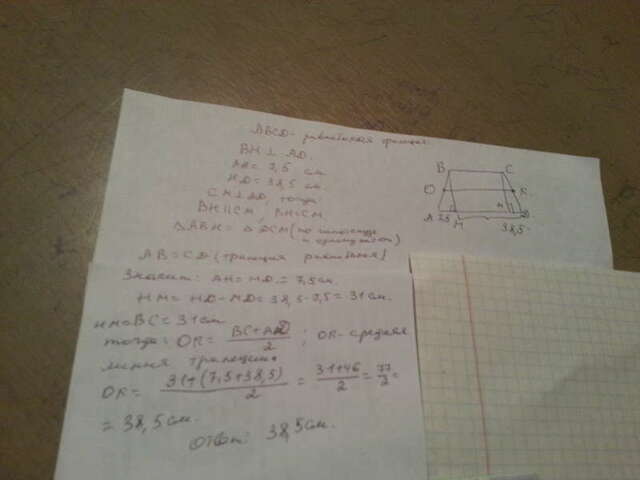 ABCD - равнобокая трапеция.
BH ⊥ AD.
AH = 7,5 см
HD = 38,5 см.
CM ⊥ AD, тогда
BH || CM, BH = CM
△ABH = △DCM (по гипотенузе
и
AB = CD (трапеция равнобокая)
Значит: AH = MD = 7,5 см.
HM = HD - MD = 38,5 - 7,5 = 31 см.
HM = BC = 31 см
тогда: OK = BC + AD / 2 ; OK - средняя
линия трапеции
OK = 31 + (7,5 + 38,5) / 2 = 31 + 46 / 2 = 77 / 2 =
= 38,5 см.
Ответ: 38,5 см.
B C
O K
A 7,5 H M D
38,5